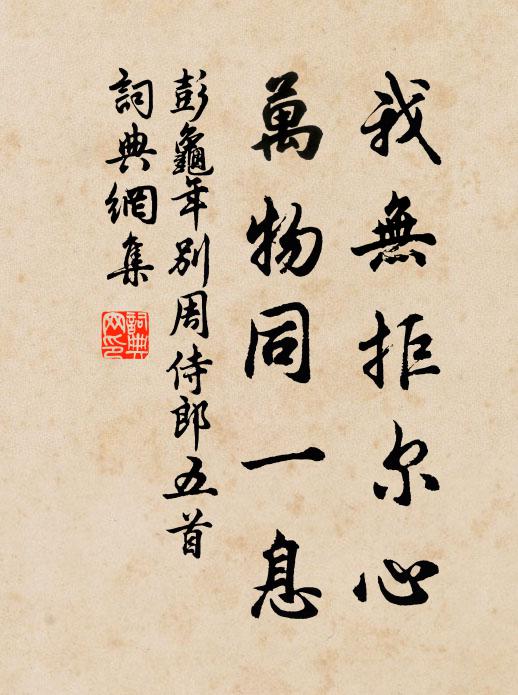 我無拒尔心
萬物同一息
彭龜年別周侍郎五首
詞典網集